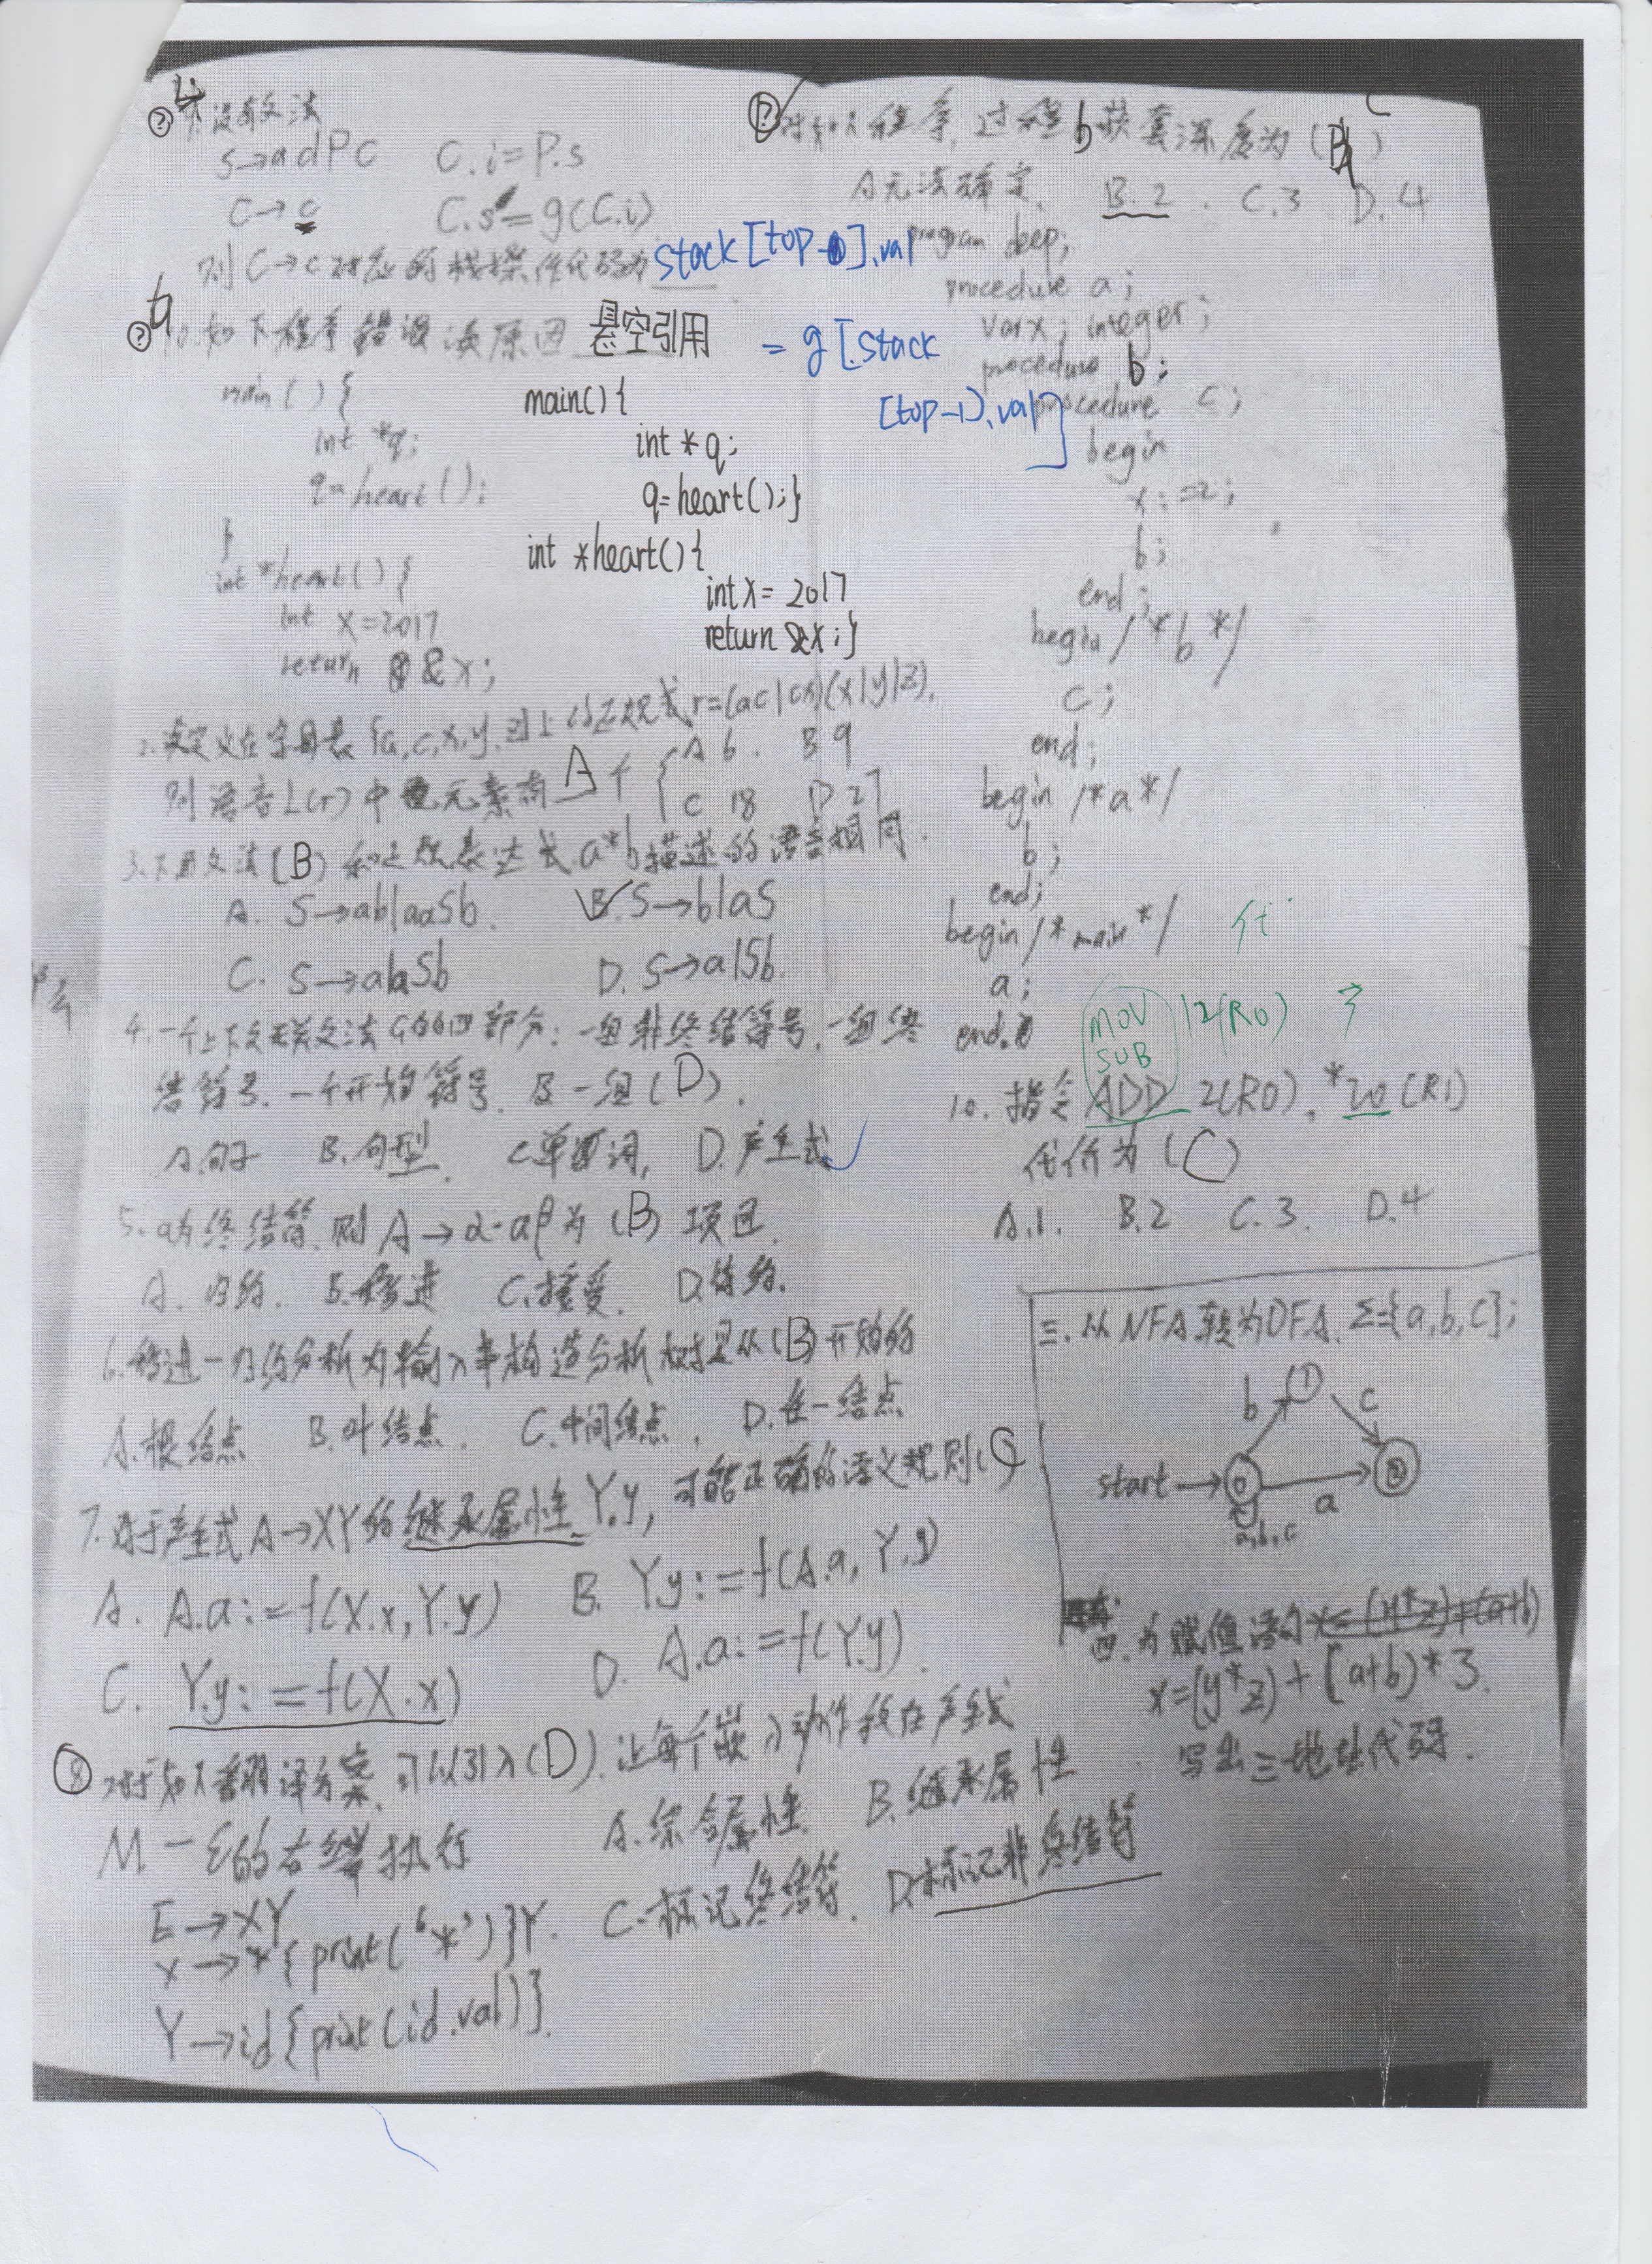 设有文法
S→adPC C.i=P.s
C→c C.s=g(C.i)
则C→c对应的栈操作代码为 stack[top-0].val
= g[stack
[top-1].val]
10.如下程序错误该原因 悬空引用
main(){
int *q;
q=heart();
}
int *heart(){
int x=2017
return &x;
main(){
int *q;
q=heart();}
int *heart(){
int x= 2017
return &x;}
2.设定义在字母表{a,c,x,y,z}上的正规式r=(ac|cx)(x|y|z).
则语言L(r)中元素有 A 个 A 6. B 9
C 18 D 27
3.下面文法(B)和正规表达式a*b描述的语言相同.
A. S→ab|aaSb. B. S→b|aS
C. S→a|aSb D. S→a|Sb.
4.一个上下文无关文法G的四部分:一组非终结符号,一组终
结符号.一个开始符号.及一组(D).
A.句子 B.句型. C.单词, D.产生式
5.a为终结符.则A→α·aβ为(B)项目.
A.归约. B.移进 C.接受. D.待约.
6.移进—归约分析为输入串构造分析树是从(B)开始的
A.根结点 B.叶结点. C.中间结点. D.任一结点
7.对于产生式A→XY的继承属性Y.y,可能正确的语义规则(C)
A. A.a:=f(X.x,Y.y) B. Y.y:=f(A.a,Y.y)
C. Y.y:=f(X.x) D. A.a:=f(Y.y).
8 对于如下翻译方案,可以引入(D).让每个嵌入动作我在产生式
M→ε的右端执行 A.综合属性. B.继承属性
C.标记终结符. D.标记非终结符
E→XY
X→*{print('*')}Y.
Y→id{print(id.val)}.
对如下程序,过程b嵌套深度为(B) C
A无法确定. B.2. C.3 D.4
program deep;
procedure a;
var x; integer;
procedure b;
procedure c;
begin
x:=2;
b;
end;
begin /*b*/
c;
end;
begin /*a*/
b;
end;
begin /*main*/
a;
end.
MOV 12(R0)
SUB
10. 指令ADD 2(R0), *20(R1)
代价为(C)
A.1. B.2 C.3. D.4
三.从NFA转为DFA. Σ={a,b,c};
b 1 c
start→ 0 a 2
a,b,c
四.为赋值语句 x=(y*z)+(a+b)
x=(y*z)+(a+b)*3.
写出三地址代码.